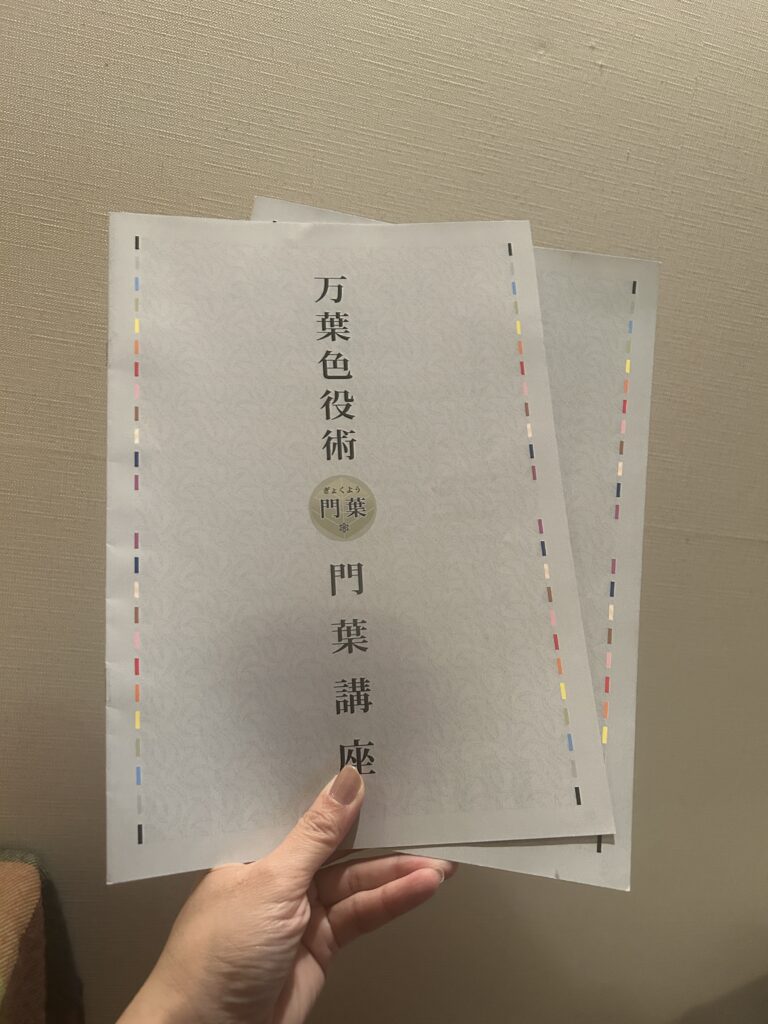 万葉色役術
ぎょくよう
門葉
門葉講座